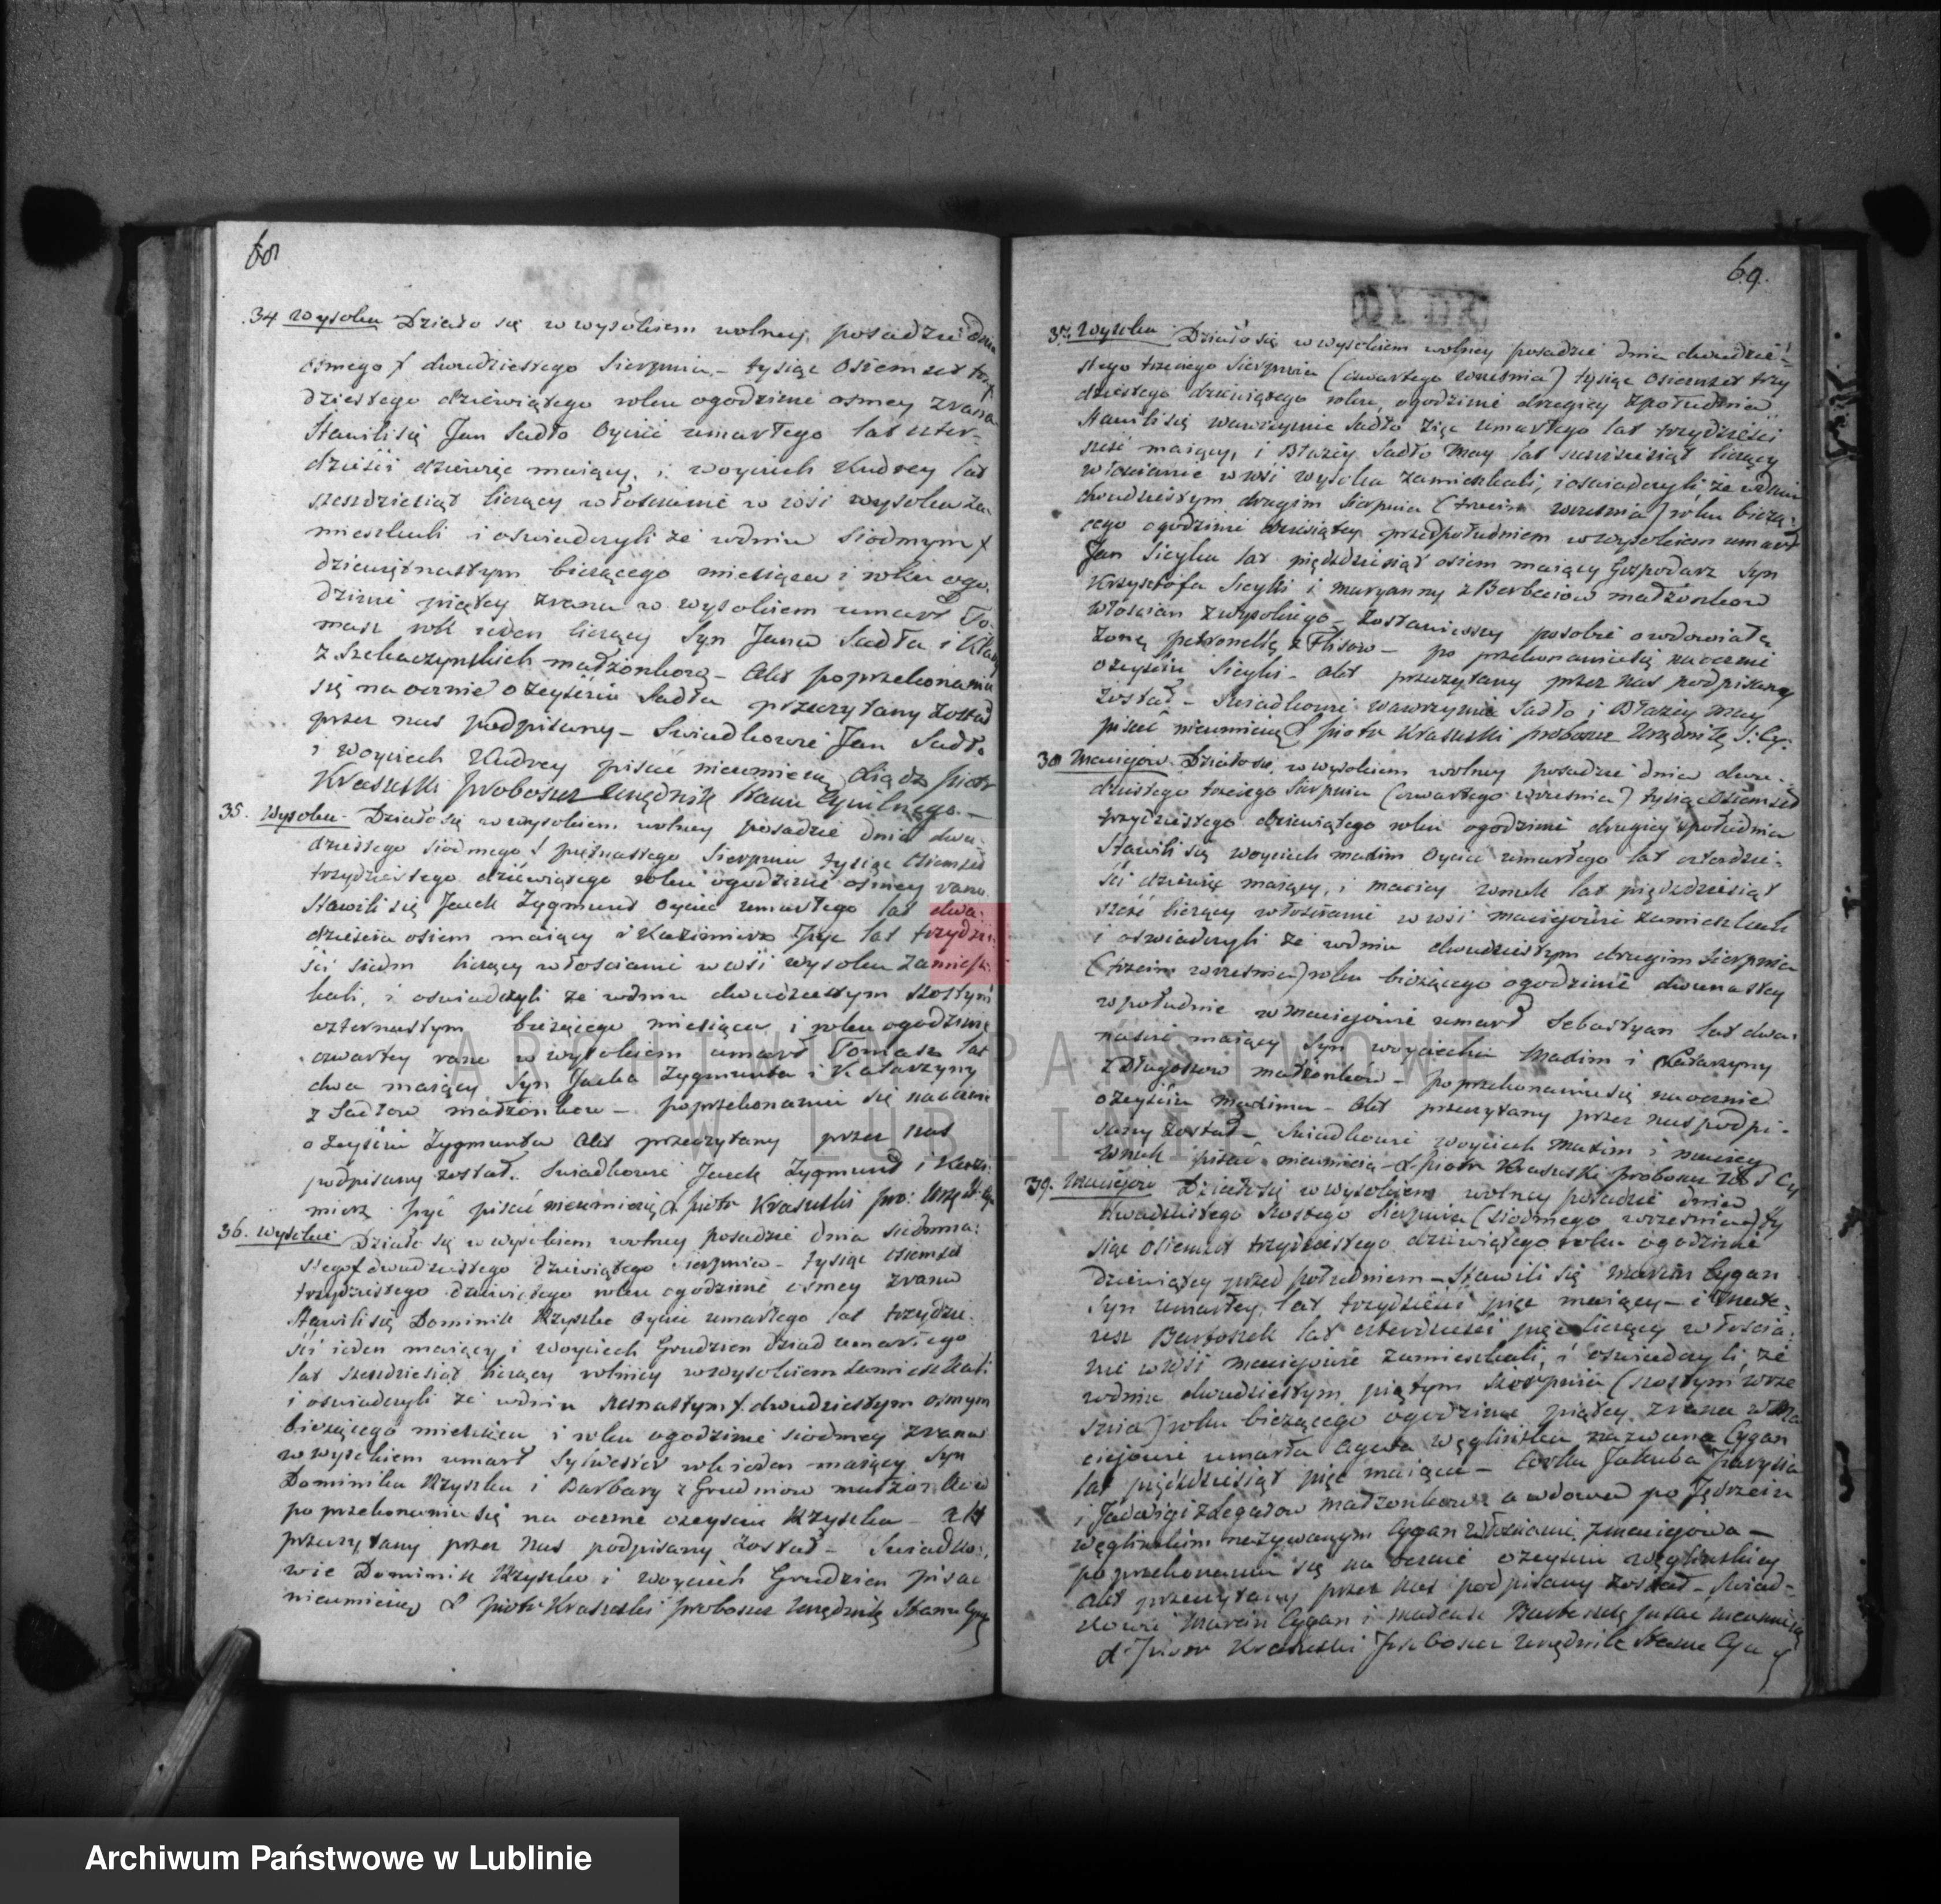 68
34 Wysokie Działo się w wysokiem wolney posadzie dnia
osmego / dwudziestego Sierpnia - tysiąc osiemset trzy
dziestego dziewiątego roku ogodzinie osmey zrana
Stawili się Jan Sadło Oyciec umarłego lat czter-
dzieści dziewięc maiący, i woyciech Kudrey lat
szesdziesiąt liczący włoscianie w wsi wysokie za-
mieszkali i oswiadczyli że wdniu siodmym /
dziewiętnastym bieżącego miesiąca i roku ogo-
dzinie piątey zrana w wysokiem umarł To-
masz rok ieden liczący Syn Jana Sadła i Klary
z małżonkow - Akt poprzekonaniu
się naocznie ozeyściu Sadła przeczytany został
przez nas podpisany - Swiadkowie Jan Sadło
i woyciech Kudrey pisać nieumieią Xiądz Piotr
Krasuski Proboszcz Urzędnik Stanu Cywilnego. -
35. Wysokie. Działo się wwysokiem wolney posadzie dnia dwu-
dziestego siodmego / pietnastego Sierpnia tysiąc osiemset
trzydziestego dziewiątego roku ogodzinie osmey rano
Stawili się Jacek Zygmunt Oyciec umarłego lat dwa-
dzieścia osiem maiący i Kazimierz lat trzydzie-
ści siedm liczący włoscianie wwsi wysokie zamiesz-
kali, i oswiadczyli że wdniu dwudziestym szostym
czternastym bieżącego miesiąca i roku ogodzinie
czwartey rano w wysokiem umarł Tomasz lat
dwa maiący Syn Jacka Zygmunta i Katarzyny
z Sadłow małżonkow - poprzekonaniu się naocznie
ozeyściu Zygmunta Akt przeczytany przez nas
podpisany został. Swiadkowie Jacek Zygmunt i Kazi-
mierz pisać nieumieią X Piotr Krasuski pro: Urzęd:
36. wysokie Działo się wwysokiem wolney posadzie dnia siedmna-
stego / dwudziestego dziewiątego sierpnia - tysiąc osiemset
trzydziestego dziewiątego roku ogodzinie osmey zrana
Stawili się Dominik Rzyszko Oyciec umarłego lat trzydzie-
ści ieden maiący i woyciech Grudzien dziad umarłego
lat szesdziesiąt liczący rolnicy wwysokiem zamieszkali
i oswiadczyli że wdniu szesnastym / dwudziestym osmym
bieżącego miesiąca i roku ogodzinie siodmey zrana
wwysokiem umarł Sylwester rok ieden maiący Syn
Dominika Rzyszka i Barbary z Grudniow małżonkow
poprzekonaniu się na oczne ozeyściu Rzyszka - akt
przeczytany przez nas podpisany został - Swiadko-
wie Dominik Rzyszko i woyciech Grudzien pisac
nieumieią X Piotr Krasuski proboszcz Urzędnik Stanu Cyw
69.
37. Wysokie Działo się wwysokiem wolney posadzie dnia dwudzie-
stego trzeciego Sierpnia (czwartego września) tysiąc osiemset trzy
dziestego dziewiątego roku, ogodzinie drugiey zpołudnia
Stawili się wawrzyniec Sadło zięc umarłego lat trzydzieści
sześć maiący, i Błażey Sadło May lat szesdziesiąt liczący
włoscianie wwsi wysokie zamieszkali, i oswiadczyli że wdniu
dwudziestym drugim sierpnia (trzecim wrzesnia) roku bieżą-
cego ogodzinie dziesiątey przedpołudniem wwysokiem umarł
Jan Sicyka lat pięćdziesiąt osiem maiący Gospodarz Syn
Krzysztofa Sicyki i maryanny z małżonkow
włoscian zwysokiego - Zostawiwszy posobie owdowiałą
żonę petronellę z Flisow - po przekonaniu się naocznie
ozeyściu Sicyki - Akt przeczytany przez nas podpisany
został - Swiadkowie wawrzyniec Sadło i Błażey May
pisać nieumieią X Piotr Krasuski proboszcz Urzędnik S: Cy:
38 Maciejow Działo się wwysokiem wolney posadzie dnia dwu-
dziestego trzeciego sierpnia (czwartego września) tysiąc osiemset
trzydziestego dziewiątego roku ogodzinie drugiey zpołudnia
Stawili się woyciech madim Oyciec umarłego lat czterdzie-
ści dziewięć maiący, i maciey wnuk lat pięćdziesiąt
sześć liczący włoscianie wwsi maciejowie zamieszkali
i oswiadczyli że wdniu dwudziestym drugim sierpnia
(trzecim wrzesnia) roku bieżącego ogodzinie dwunastey
wpołudnie wmaciejowie umarł Sebastyan lat dwa-
naście maiący Syn woyciecha Madim i Katarzyny
z Długoszow małżonkow - poprzekonaniu się naocznie
ozeyściu madima - Akt przeczytany przez nas podpi-
sany został - Swiadkowie woyciech Madim i maciey
wnuk pisać nieumieią - X Piotr Krasuski proboszcz
39. Maciejow Działo się wwysokiem wolney posadzie dnia
dwudziestego szostego sierpnia (siodmego wrzesnia) ty
siąc osiemset trzydziestego dziewiątego roku ogodzinie
dziewiątey przed południem - Stawili się Marcin Cygan
Syn umarłey, lat trzydzieści pięc maiący - i Mate-
usz Bartoszek lat czterdzieści pięc liczący włoscia-
nie wwsi maciejowie zamieszkali, i oswiadczyli, że
wdniu dwudziestym piątym sierpnia (szostym wrze
snia) roku bieżącego ogodzinie piątey zrana wMa
ciejowie umarła Agata węglinska nazwana Cygan
lat pięćdziesiąt pięc maiąca - Corka Jakuba
i Jadwigi małżonkow a wdowa po Jędrzeiu
węglinskim nazywanym Cygan włoscianie zmaciejowa -
poprzekonaniu się na oczne ozeyściu węglinskiey
akt przeczytany przez nas podpisany został - Swiad-
kowie Marcin Cygan i mateusz Bartoszek pisać nieumieią
X Piotr Krasuski Proboszcz Urzędnik Stanu Cyw
ARCHIWUM PAŃSTWOWE
W LUBLINIE
Archiwum Państwowe w Lublinie